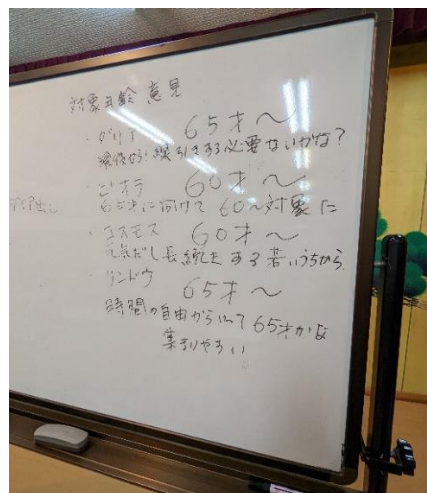 対象年齢 意見
・ダリア 65才～
線引きする必要ないかな?
・ビオラ 60才～
に向けて 60～対象に
・コスモス 60才～
元気だし長続きする若いうちから
・リンドウ 65才～
時間の自由からいって 65才かな
集まりやすい